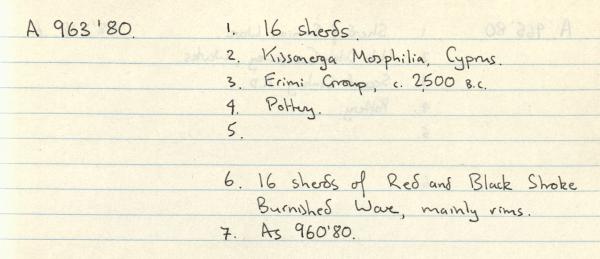 A 963'80. 1. 16 sherds.
2. Kissonerga Mosphilia, Cyprus.
3. Erimi Group, c. 2,500 B.C.
4. Pottery.
5.
6. 16 sherds of Red and Black Stroke
Burnished Ware, mainly rims.
7. As 960'80.